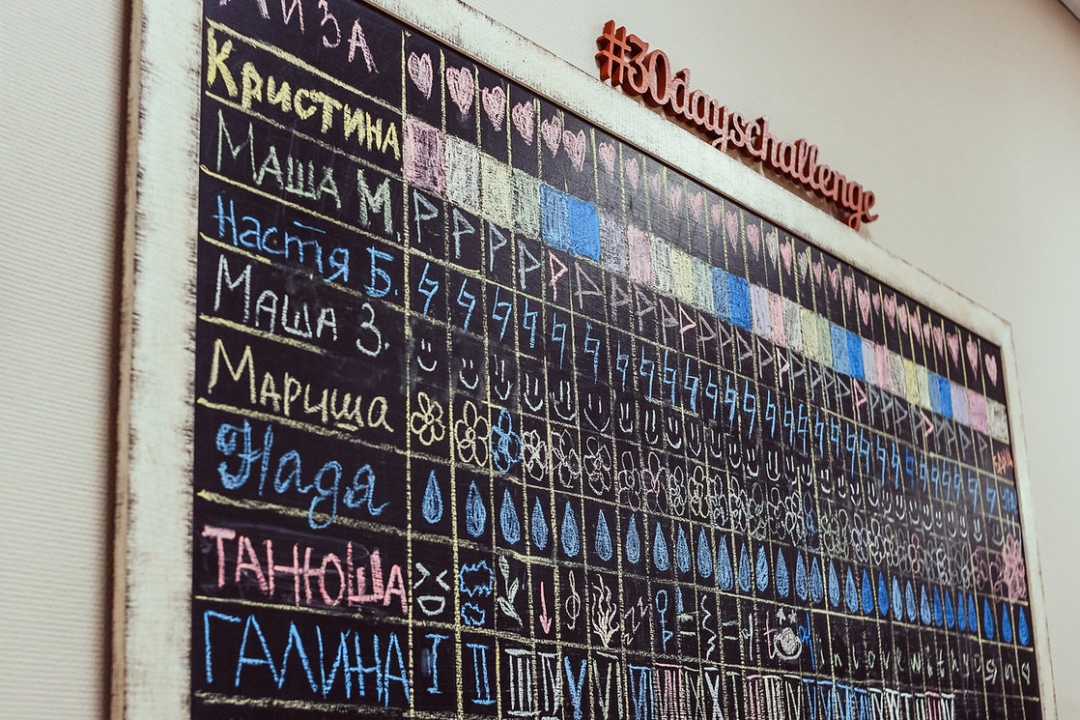 #30dayschallenge
ЛИЗА
Кристина
МАША М
Настя Б.
МАША З.
МАРИША
Надя
ТАНЮША
ГАЛИНА I II III IV V VI